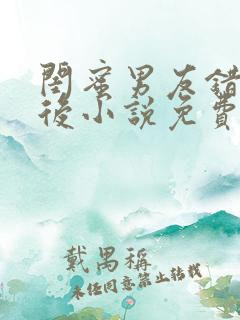 閨蜜男友錯
後小說免費
戴禺稱
未任同意禁止转载